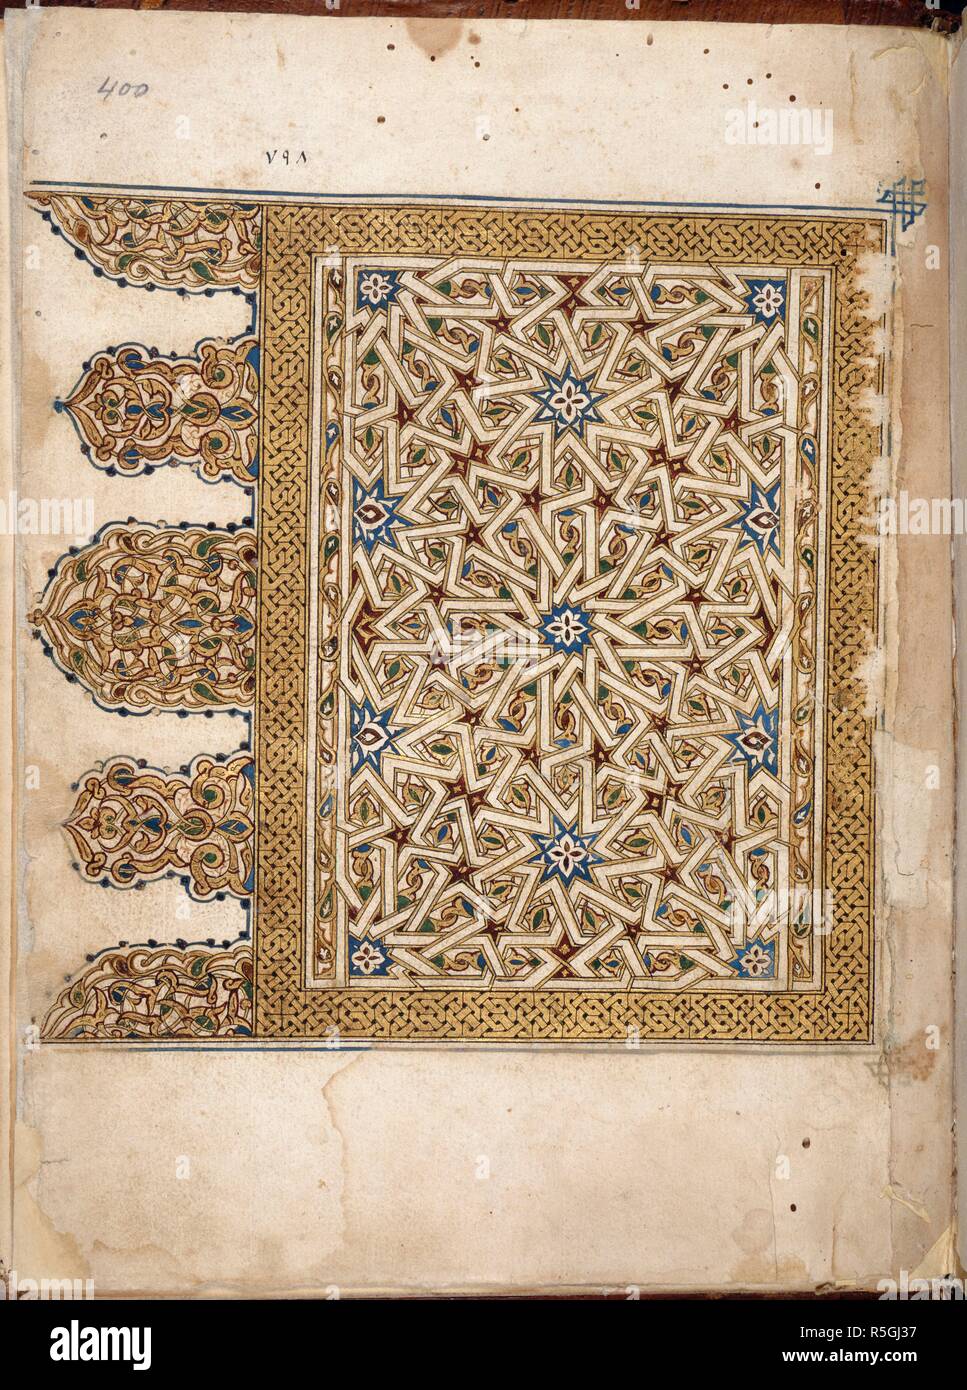 400
٧٩٨
alamy
Image ID: R5GJ37
www.alamy.com